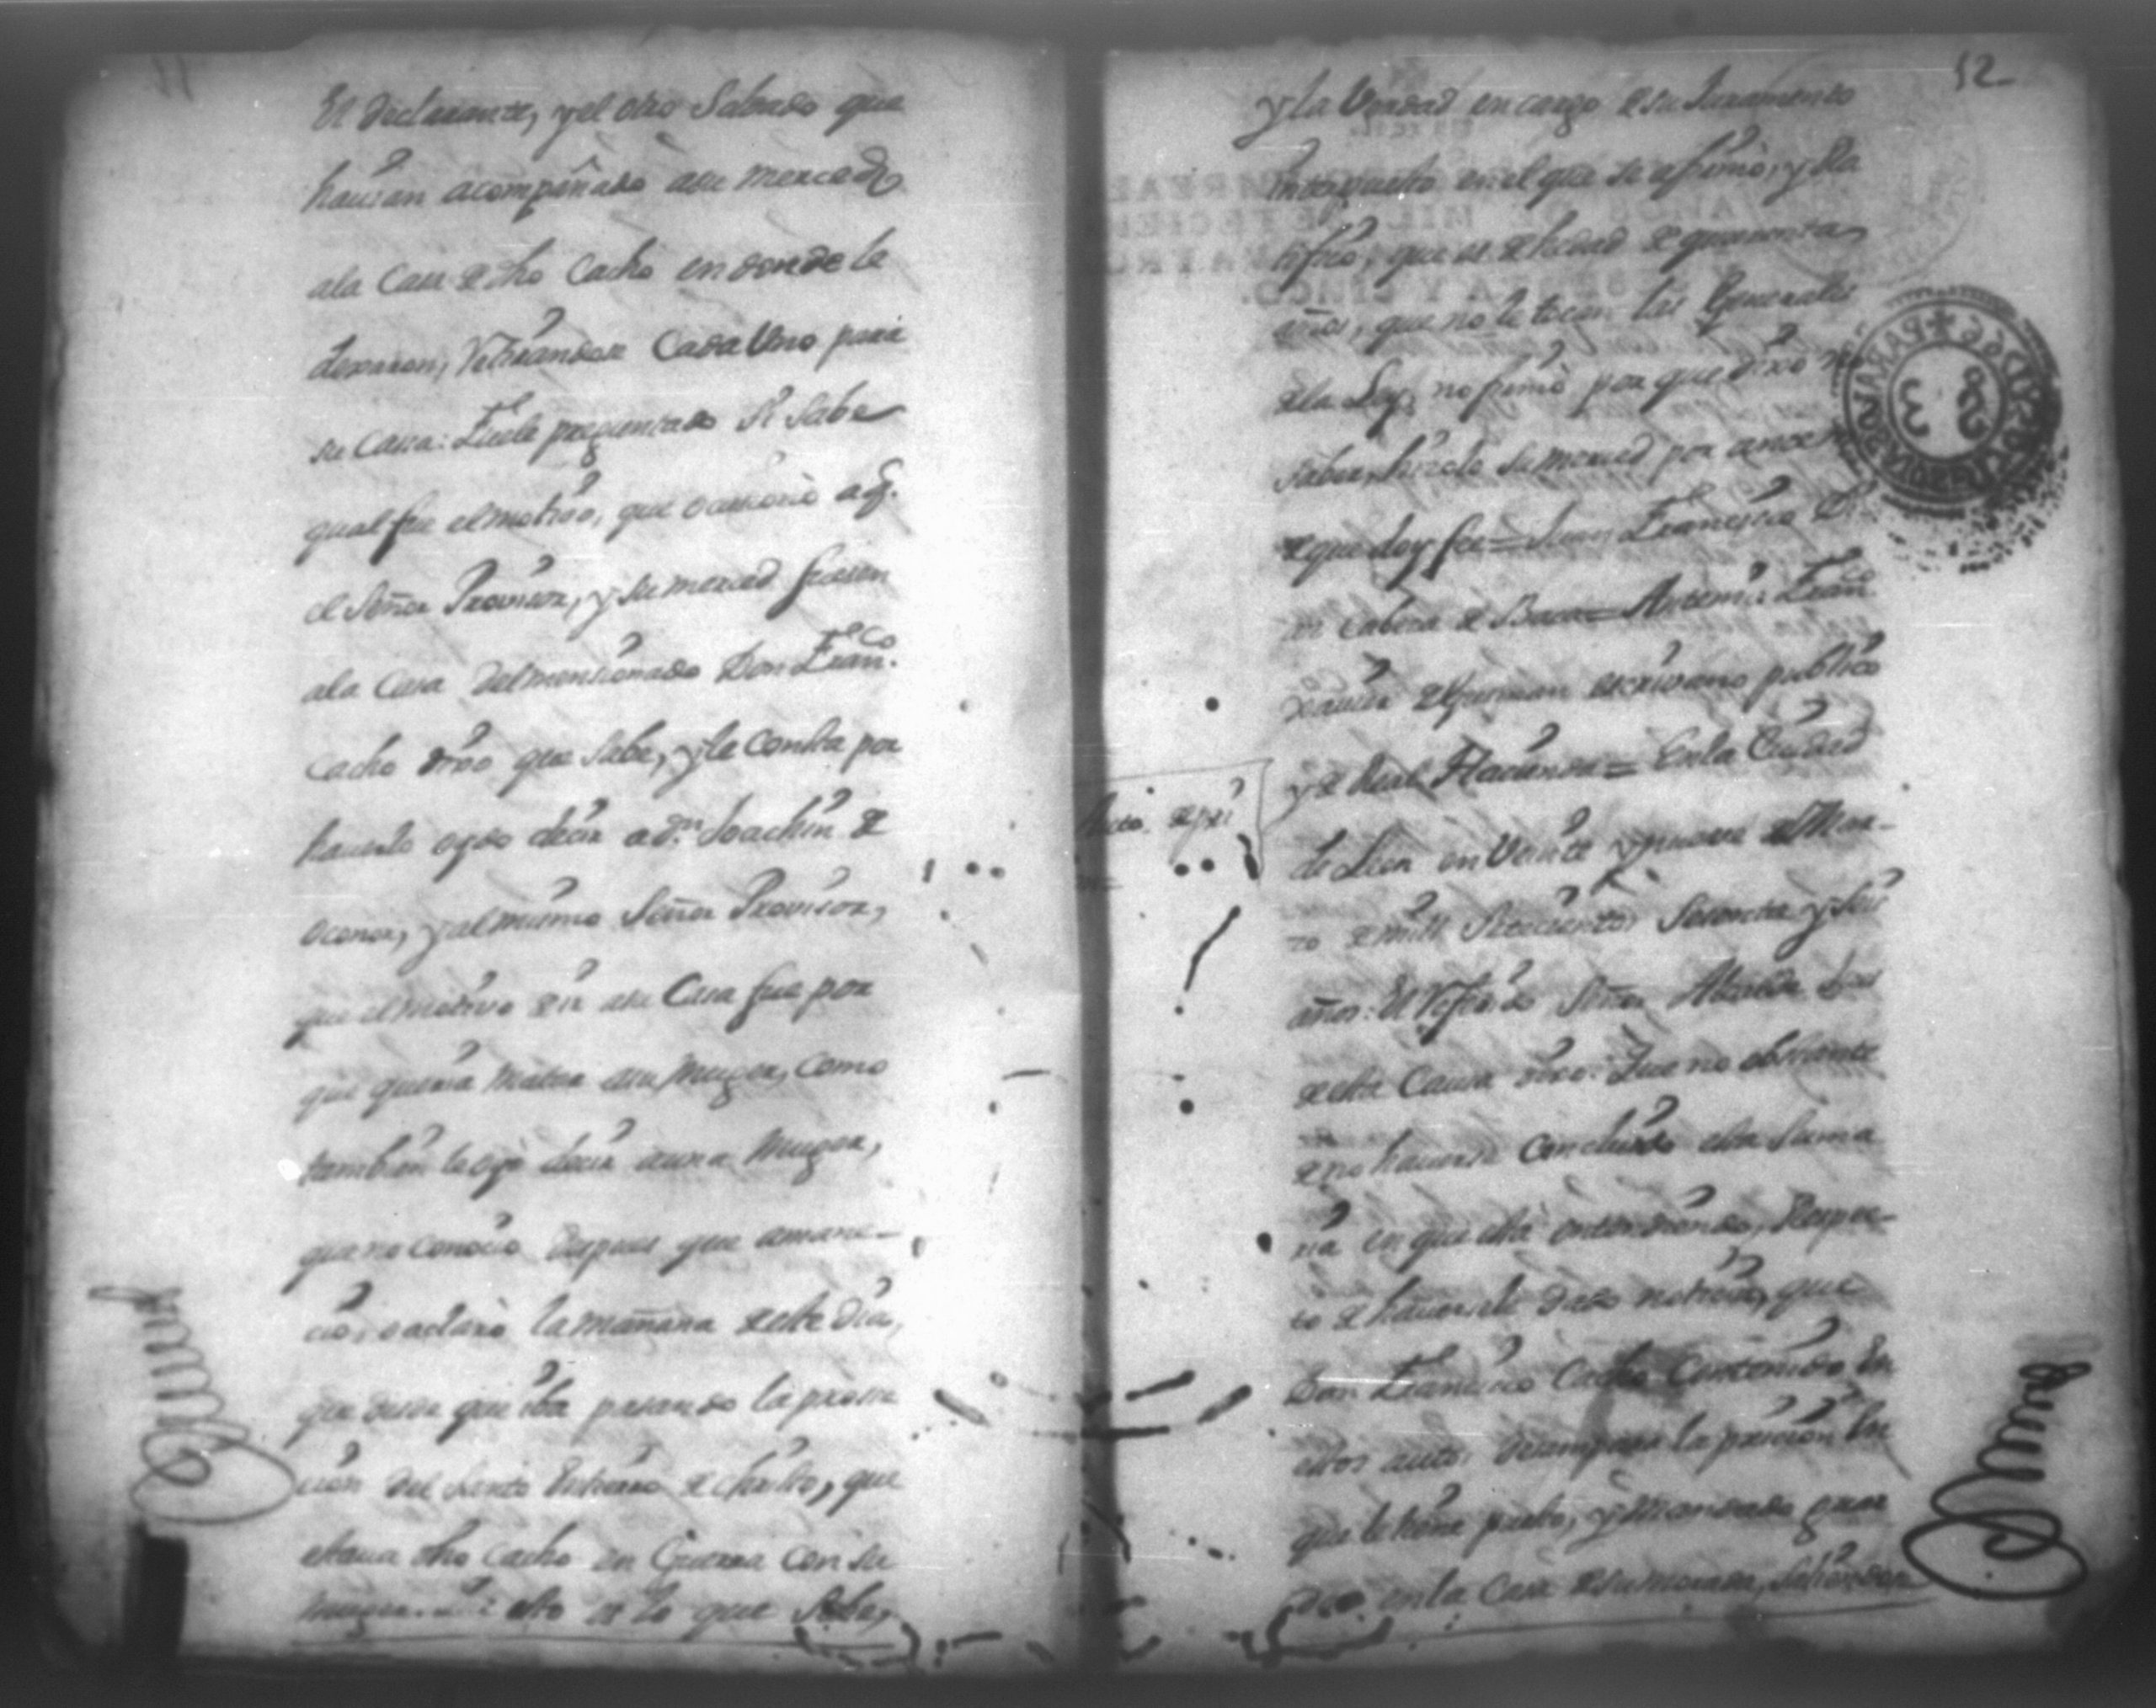 El declarante, y el otro Soldado que
hauian acompañado a su merced
a la Casa de dho Cacho en donde le
dexaron, retirandose Cada Uno para
su Casa: Fuele preguntado si Sabe
qual fue el motivo, que ocasionó a q.
el Señor Provisor, y su merced fuesen
a la Casa del mensionado Don Franco.
Cacho dixo que Sabe, y le Consta por
hauerlo oydo decir a dn. Joachin de
Oconor, y al mismo Señor Provisor,
que el motivo de ir a su Casa fue por
que queria matar a su Muger, como
tambien lo oyó decir a una Muger,
que no conocio despues que amane-
cio, o aclaró la mañana de este dia,
que dise que iba pasando la prosse
cion del Santo Entierro de Christo, que
estaua dho Cacho en Guerra con su
muger. esto es lo que Sabe,
52
y la Verdad en cargo de su Juramento
interpuesto en el que se afirmó, y Ra
tificó, que es de hedad de quarenta
años, que no le tocan las Generales
de la Ley, no firmó por que dixo no
saber, hizolo su merced por ante mi
de que doy fee = Juan Francisco
Cabeza de Baca = Antemi: Franco
Xauier de Guzman escriuano publico
y de Real Hacienda = En la Ciudad
Auto de pri
de Leon en Veinte y nueve de Mar-
zo de mill Setecientos Sesenta y Seis
años: El Referido Señor Alcalde Juez
de esta Causa dixo: Que no obstante
de no hauerse Concluido esta Suma
ria en que está entendiendo, Respec-
to de hauersele dado noticia, que
Don Francisco Cacho Contenido en
estos autos la pricion en
que le tiene puesto, y mandado guar
dar en la Casa de su morada, Saliendose
PARA LOS AÑOS DE 1765 Y 66